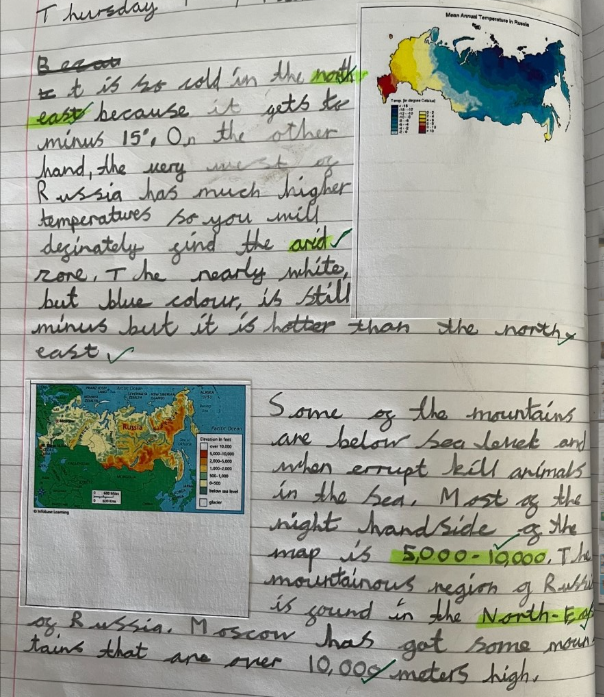 Thursday
Becau
It is so cold in the north
east because it gets to
minus 15°. On the other
hand, the very west of
Russia has much higher
temperatures so you will
definately find the arid
zone. The nearly white,
but blue colour, is still
minus but it is hotter than the north
east
Mean Annual Temperature in Russia
Temp. (in degree Celcius)
Russia
Pacific Ocean
Elevation in feet
over 10,000
5,000-10,000
2,000-5,000
1,000-2,000
500-1,000
0-500
below sea level
glacier
Some of the mountains
are below sea level and
when errupt kill animals
in the sea. Most of the
right hand side of the
map is 5,000-10,000. The
mountainous region of Russia
is found in the North-East
of Russia. Moscow has got some moun-
tains that are over 10,000 meters high.